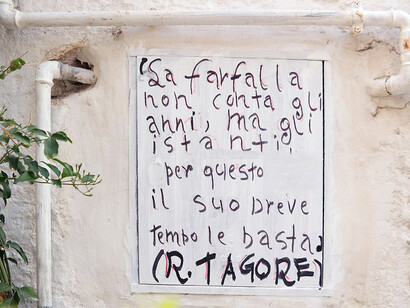 "La farfalla
non conta gli
anni, ma gli
istanti,
per questo
il suo breve
tempo le basta"
(R. TAGORE)